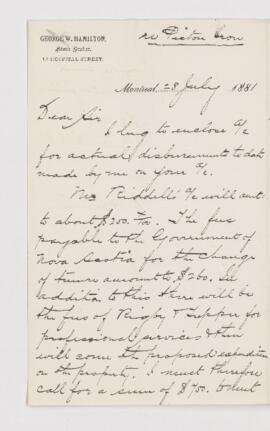 re Pictou Iron
GEORGE W. HAMILTON,
Stock Broker,
HOSPITAL STREET.
Montreal, 23 July 1881
Dear Sir
I beg to enclose a/c
for actual disbursements to date
made by me on your a/c.
Mr Riddell's a/c will amt.
to about $200. The fees
payable to the Government of
Nova Scotia for the change
of tenure amount to $260. In
addition to this there will be
the fees of Rigby & Tupper for
professional services & then
will come the proposed expenditure
on the property. I must therefore
call for a sum of $750. to meet